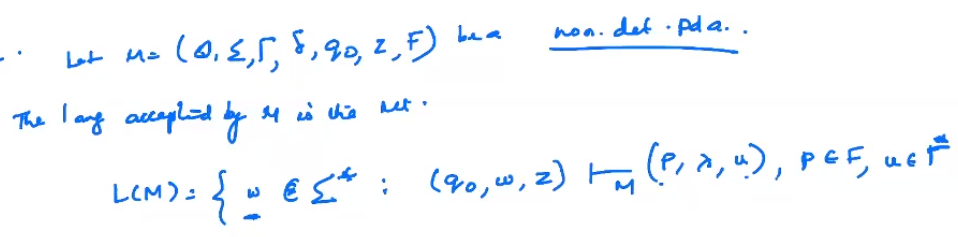 Let M = (Q, Σ, Γ, δ, q0, z, F) be a non. det. pda.
The lang accepted by M is the set.
L(M) = { w ∈ Σ* : (q0, w, z) ⊢M (p, λ, u), p ∈ F, u ∈ Γ*